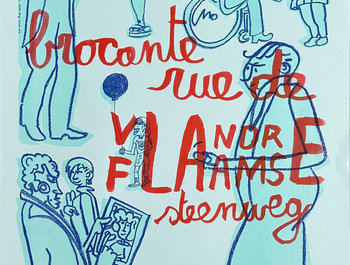 MO
brocante
rue de
VLANDRE
FLAAMSE
steenweg